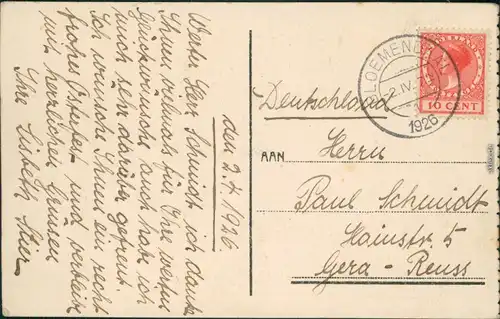 den 2.4.1926.
Werter Herr Schmidt ich danke
Ihnen vielmals für Ihre werten
Glückwünsche, auch hab ich
mich sehr darüber gefreut.
Ich wünsche Ihnen ein recht
frohes Osterfest und verbleibe
mit herzlichen Grüssen
Ihre Lisbeth
BLOEMENDAAL
2.IV.
1926
NEDERLAND
10 CENT
Deutschland
AAN
Herrn
Paul Schmidt
Hainstr. 5
Gera - Reuss